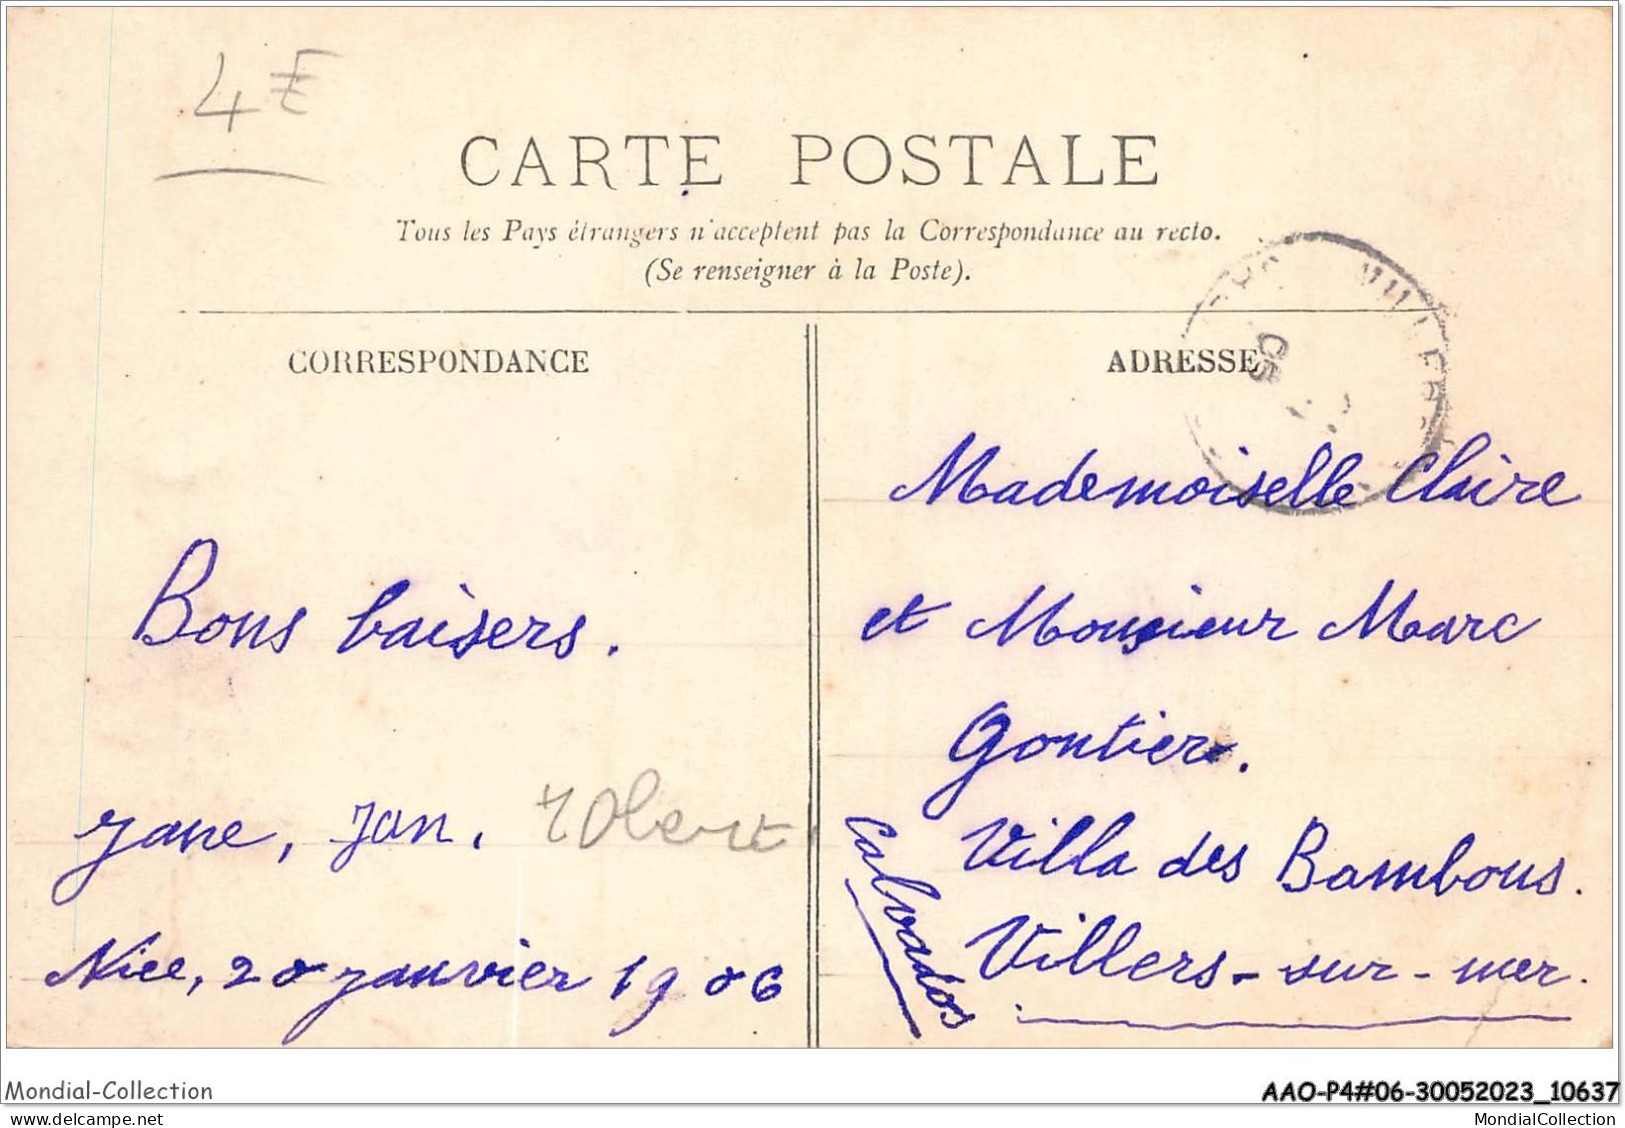 4€
CARTE POSTALE
Tous les Pays étrangers n'acceptent pas la Correspondance au recto.
(Se renseigner à la Poste).
CORRESPONDANCE
Bons baisers.
Jane, Jan, Robert
Nice, 20 janvier 1906
ADRESSE
Mademoiselle Claire
et Monsieur Marc
Gontier.
Villa des Bambous.
Villers-sur-mer.
Calvados
Mondial-Collection
AAO-P4#06-30052023_10637
MondialCollection